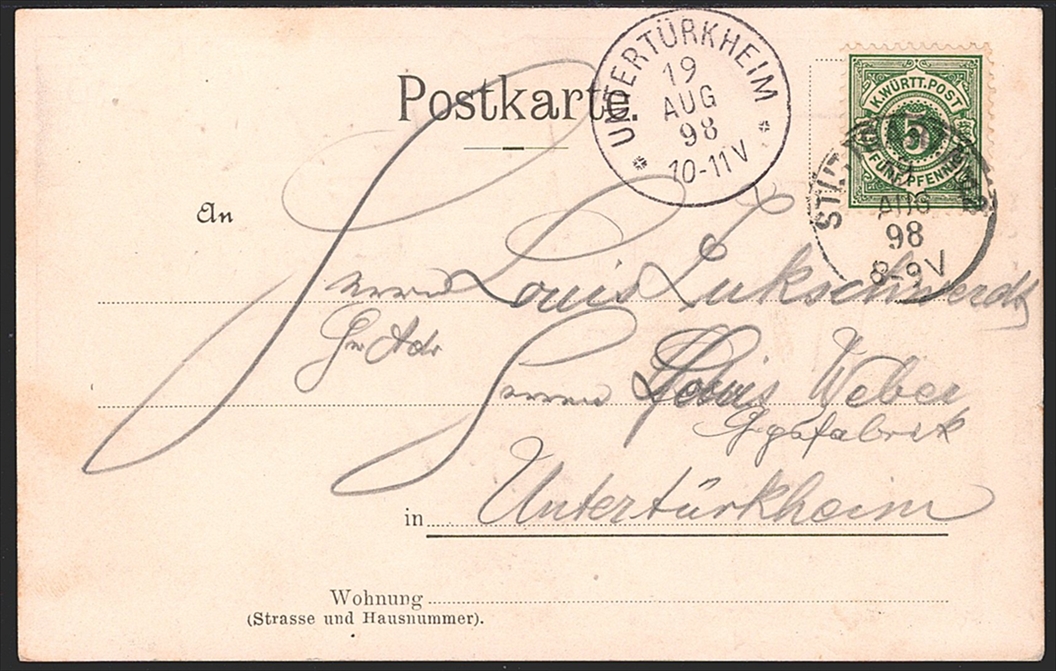 Postkarte.
UNTERTÜRKHEIM
19
AUG
98
10-11V
K. WÜRTT. POST
5
FÜNF PFENNIG
AUG
98
8-9V
An
Herrn Louis Lukschwerdt
Pr Adr
Herrn Louis Weber
Gypsfabrik
in Untertürkheim
Wohnung
(Strasse und Hausnummer).